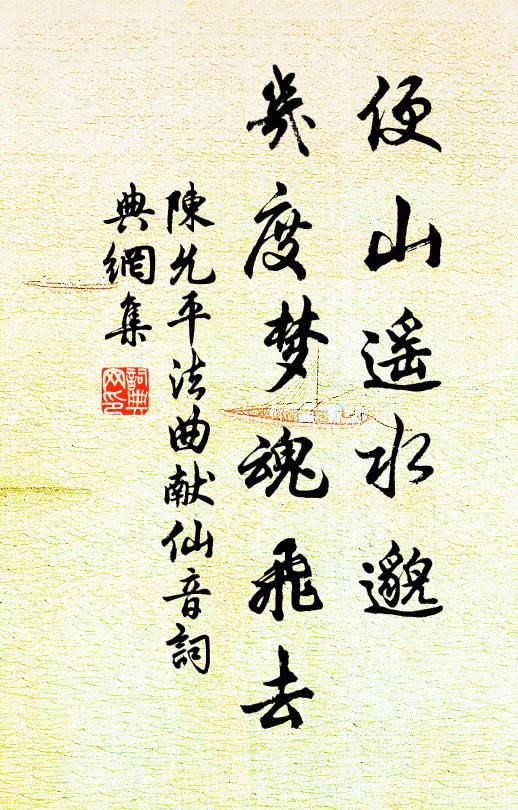 便山遥水邈
幾度梦魂飛去
陳允平法曲献仙音詞
典網集
詞典网印